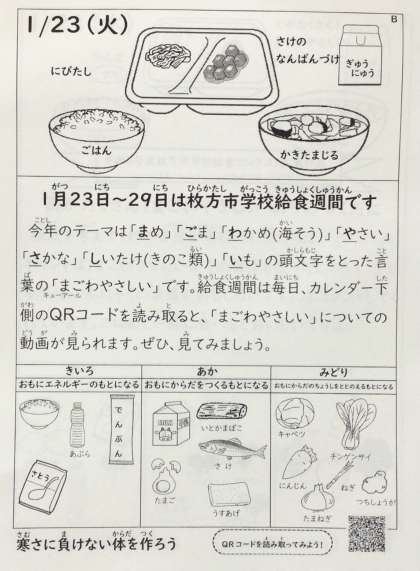 1/23(火)
B
にびたし
さけの
なんばんづけ
ぎゅう
にゅう
ごはん
かきたまじる
がつ にち にち ひらかたし がっこう きゅうしょくしゅうかん
1月23日～29日は枚方市学校給食週間です
ことし かい
今年のテーマは「まめ」「ごま」「わかめ(海そう)」「やさい」
るい かしらもじ こと
「さかな」「しいたけ(きのこ類)」「いも」の頭文字をとった言
ば きゅうしょくしゅうかん まいにち した
葉の「まごわやさしい」です。給食週間は毎日、カレンダー下
がわ キューアール よ と
側のQRコードを読み取ると、「まごわやさしい」についての
どうが み み
動画が見られます。ぜひ、見てみましょう。
きいろ
おもにエネルギーのもとになる
あぶら
でんぷん
さとう
あか
おもにからだをつくるもとになる
いとかまぼこ
さけ
たまご
うすあげ
みどり
おもにからだのちょうしをととのえるもとになる
キャベツ
チンゲンサイ
にんじん
ねぎ
つちしょうが
たまねぎ
さむ ま からだ つく
寒さに負けない体を作ろう
QRコードを読み取ってみよう!